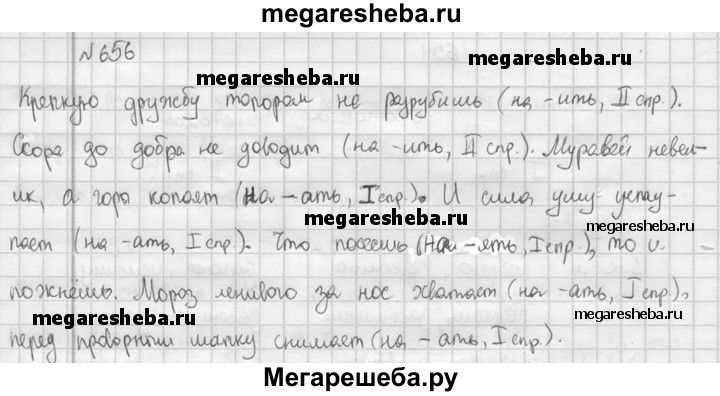 megaresheba.ru
№656
megaresheba.ru
megaresheba.ru
Крепкую дружбу топором не разрубишь (на -ить, II спр.).
Ссора до добра не доводит (на -ить, II спр.). Муравей невел-
ик, а горы копает (на -ать, I спр.). И сила уму усту-
megaresheba.ru
пает (на -ать, I спр.). Что посеешь (на -ять, I спр.), то и
пожнёшь. Мороз ленивого за нос хватает (на -ать, I спр.),
megaresheba.ru
megaresheba.ru
перед проворным шапку снимает (на -ать, I спр.).
Мегарешеба.ру